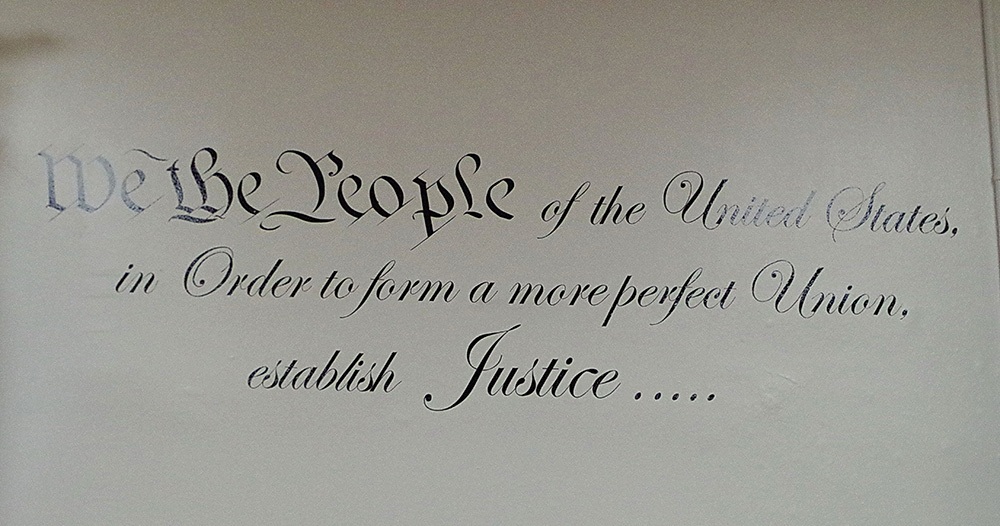 We the People of the United States,
in Order to form a more perfect Union,
establish Justice .....